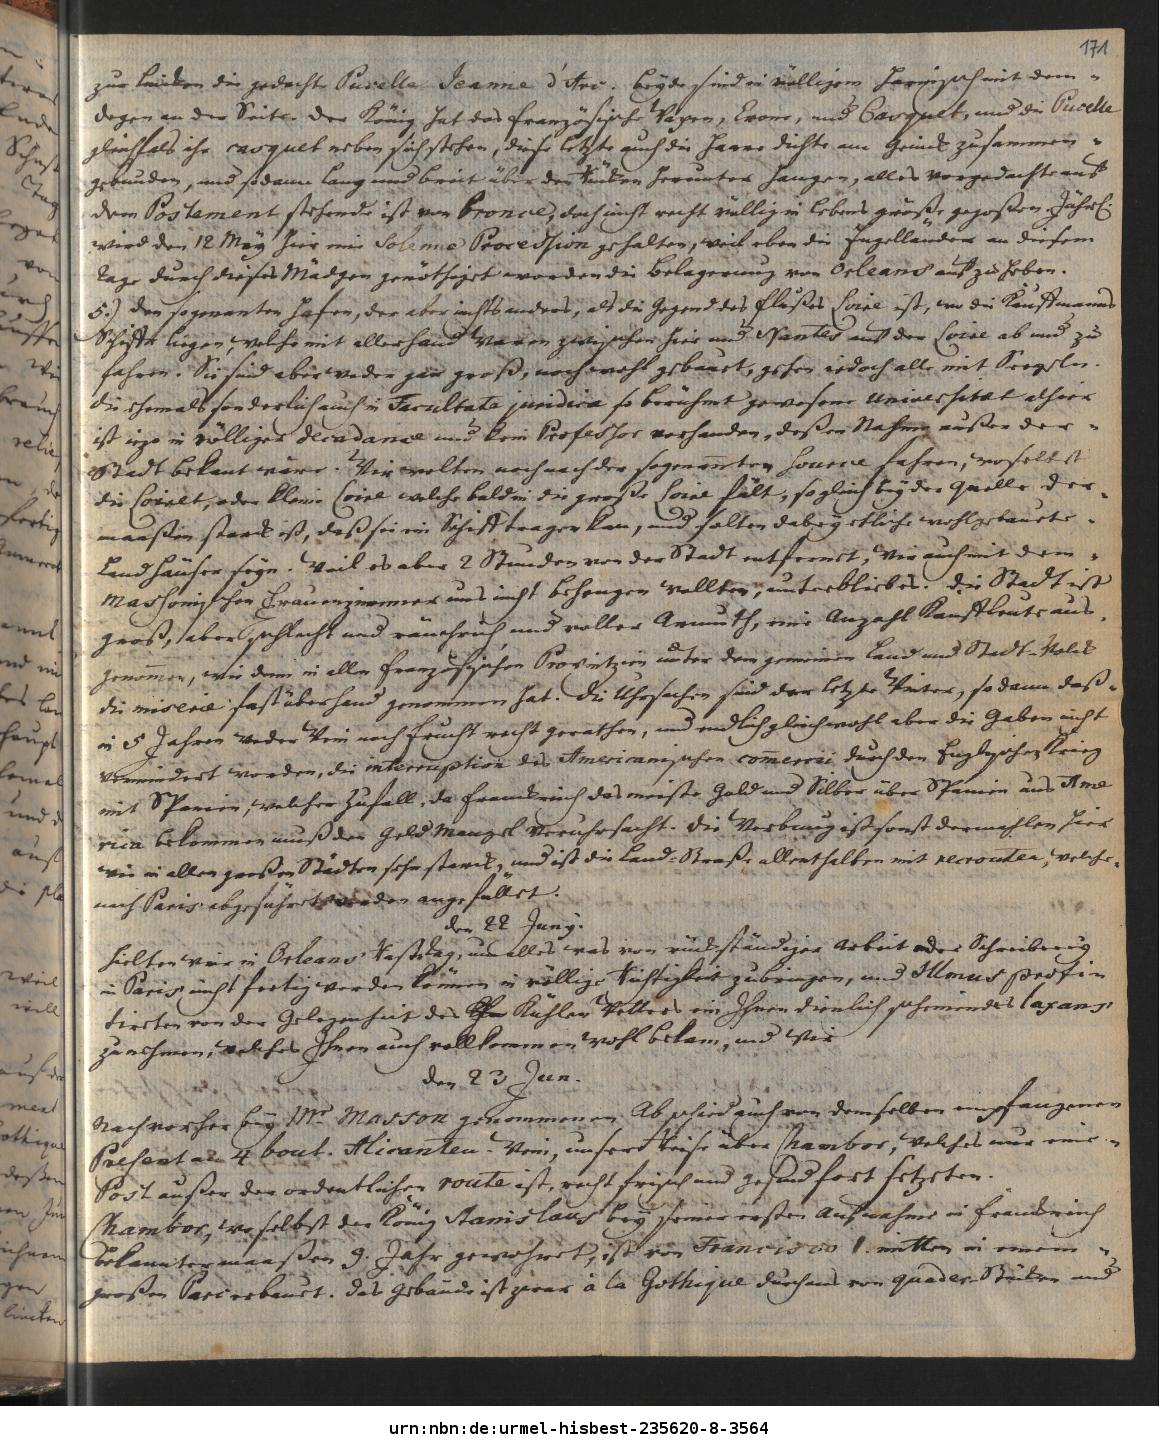 171
zur lincken die gedachte Pucelle Jeanne d'Arc. beyde sind in völligem Harnisch mit dem
degen an der Seite. Der König hat das französische Wapen, Crone, und Casquet, und die Pucelle
gleichfals ihr casquet neben sich stehen, diese letzte auch die Haare dichte am Genick zusammen
gebunden, und sodann lang und breit über den Rücken herunter hangen, alles vorgedachte auf
dem Postement stehende ist von bronce, doch nicht recht völlig in lebens größe gegoßen. Jährl:
wird den 12 May hier eine Solenne Procession gehalten, weil eben die Engelländer an diesem
tage durch dieses Mädgen genöthiget worden die belagerung von Orleans auf zu heben.
5.) den sogenanten Hafen, der aber nichts anders, als die Gegend des flußes Loire ist, wo die Kauffmanns
Schiffe liegen, welche mit allerhand Waaren zwischen hier und Nantes auf der Loire ab und zu
fahren. Sie sind aber weder gar groß, noch wohl gebauet, gehen iedoch alle mit Seegeln.
die ehemals sonderlich auch in Facultate juridica so berühmt gewesene Universitæt alhier
ist izo in völliger decadance und kein Professor vorhanden, deßen Nahme außer der
Stadt bekant wäre. Wir wolten noch nach der sogenannten Source fahren, woselbst
die Loiret, oder kleine Loire welche bald in die große Loire fält, so gleich bey der Quelle der
maaßen starck ist, daß sie ein Schiff tragen kan, und sollen dabey etliche wohlgebauete
Landhäuser seyn. Weil es aber 2 Stunden von der Stadt entfernet, Wir auch mit dem
Massonischen Frauenzimmer uns nicht behengen wollten, unterbliebes. Die Stadt ist
groß, aber schlecht und räucherich und voller Armuth, eine Anzahl Kauffleute aus
genommen, wie denn in allen französischen Provintzien unter dem gemeinen Land und Stadt-Volck
die miserie fast überhand genommen hat. Die Uhrsachen sind der letzte Winter, so dann daß
in 5 Jahren weder Wein noch frucht recht gerathen, und endlich gleichwohl aber die Gaben nicht
vermindert worden, die interruption des Americanischen commercii durch den Englischen Krieg
mit Spanien, welcher Zufall, da Franckreich das meiste Gold und Silber über Spanien aus Ame
rica bekommen muß den Geld Mangel verursacht. Die Werbung ist sonst dermahlen hier
wie in allen großen Städten sehr starck, und ist die Land-Straße allenthalben mit recrouten, welche
nach Paris abgeführet werden angefüllet.
den 22 Juny.
hielten wir in Orleans Rasttag, um alles was von rückständiger Arbeit oder Schreiberey
in Paris nicht fertig werden können in völlige Richtigkeit zu bringen, und Illmus profi
tirten von der Gelegenheit des kühlen Wetters ein Ihnen dienlich scheinendes laxans
zu nehmen, welches Ihnen auch vollkommen wohl bekam, und Wir
den 23 Jun.
nach vorher bey Mr. Masson genommenen Abschied auch von demselben empfangenen
Present an 4 bout. Alicanten-Wein, unsere Reise über Chambor, welches nur eine
Post außer der ordentlichen route ist, recht frisch und gesund fort setzten.
Chambor, woselbst der König Stanislaus bey seiner ersten Aufnahme in Franckreich
bekanntermaaßen 9. Jahr gewohnet, ist von Francisco I. mitten in einem
großen Parc erbauet. Das Gebäude ist zwar à la Gothique durchaus von quader-Stücken und
urn:nbn:de:urmel-hisbest-235620-8-3564